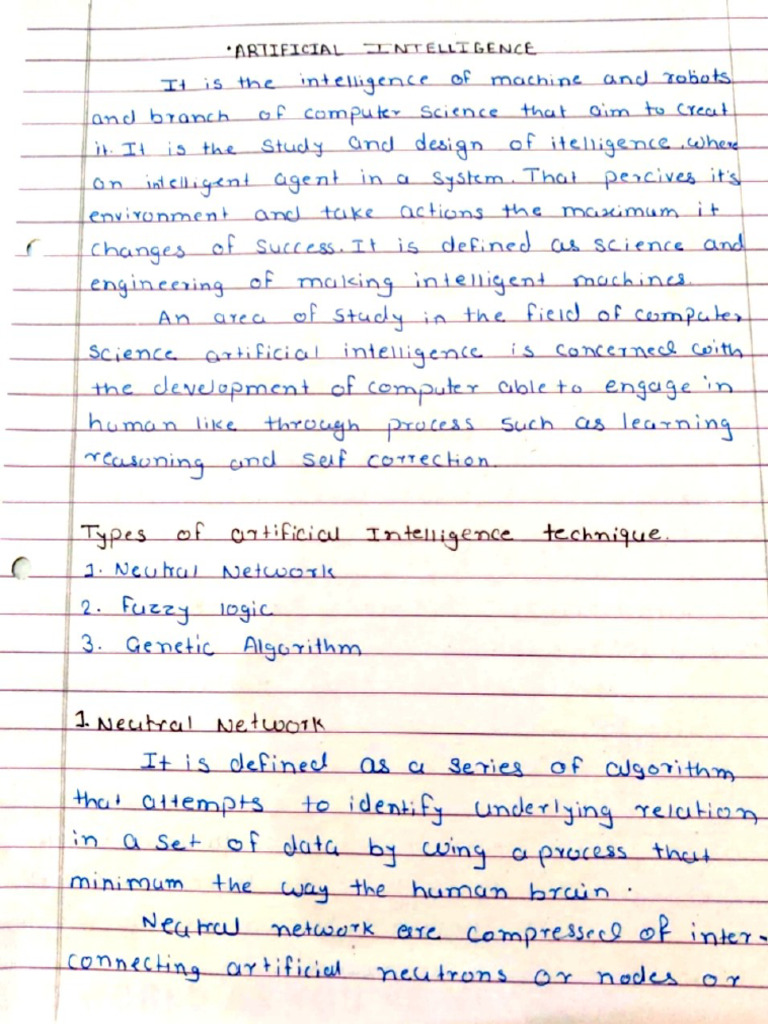 ·ARTIFICIAL INTELLIGENCE
It is the intelligence of machine and robots
and branch of computer science that aim to creat
it. It is the study and design of itelligence, where
an intelligent agent in a system. That percives it's
environment and take actions the maximum it
changes of success. It is defined as science and
engineering of making intelligent machines.
An area of study in the field of computer
science artificial intelligence is concerned with
the development of computer able to engage in
human like through process such as learning
reasoning and self correction.
Types of artificial Intelligence technique.
1. Neutral Network
2. Fuzzy logic
3. Genetic Algorithm
1. Neutral Network
It is defined as a series of algorithm
that attempts to identify underlying relation
in a set of data by using a process that
minimum the way the human brain.
Neutral network are compressed of inter-
connecting artificial neutrons or nodes or